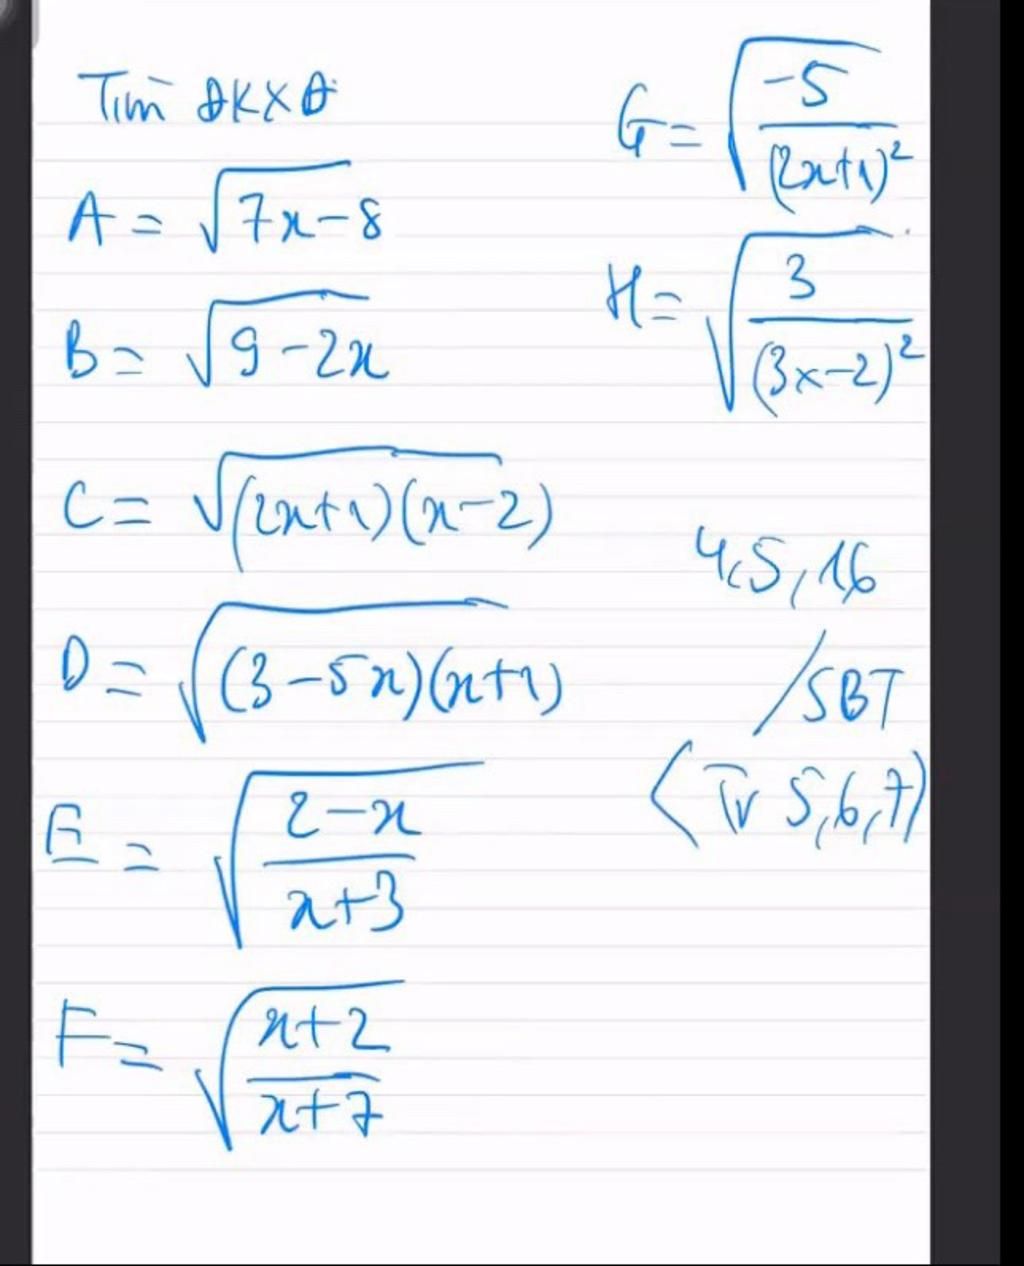 Tìm ĐKXĐ
A = √7x-8
B = √9-2x
C = √(2x+1)(x-2)
D = √(3-5x)(x+1)
E = √2-x/x+3
F = √x+2/x+7
G = √-5/(2x+1)²
H = √3/(3x-2)²
4,5,16
/SBT
(Tr 5,6,7)